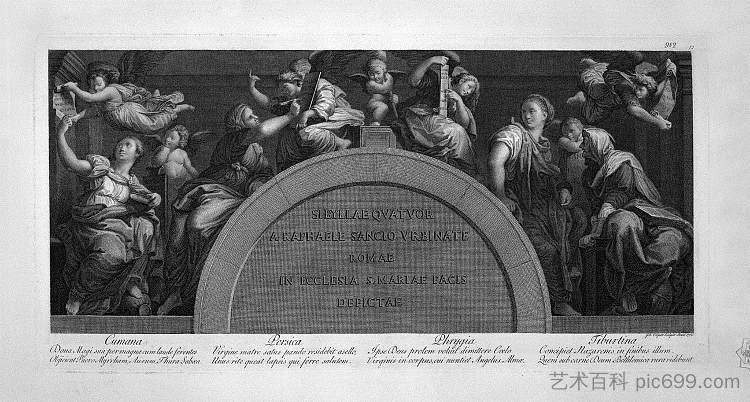 912
SIBYLLAE QVATVOR
A RAPHAELE SANCIO VRBINATE
ROMAE
IN ECCLESIA S. MARIAE PACIS
DEPICTAE
Cumana
Dona Magi sua per magnas cum laude ferentes
Puero Myrrham, Aurum, Thura Sabæa
Persica
Virgine matre satus pando residebit asello,
Unus rite queat lapsis qui ferre salutem.
Phrygia
Ipse Deus prolem voluit dimittere Coelo
Virginis in corpus, cui nuntiet Angelus Almæ.
Tiburtina
Concipiet Nazarenis in finibus illum,
Quem sub carne Deum Bethlemica rura videbunt
艺术百科 pic699.com